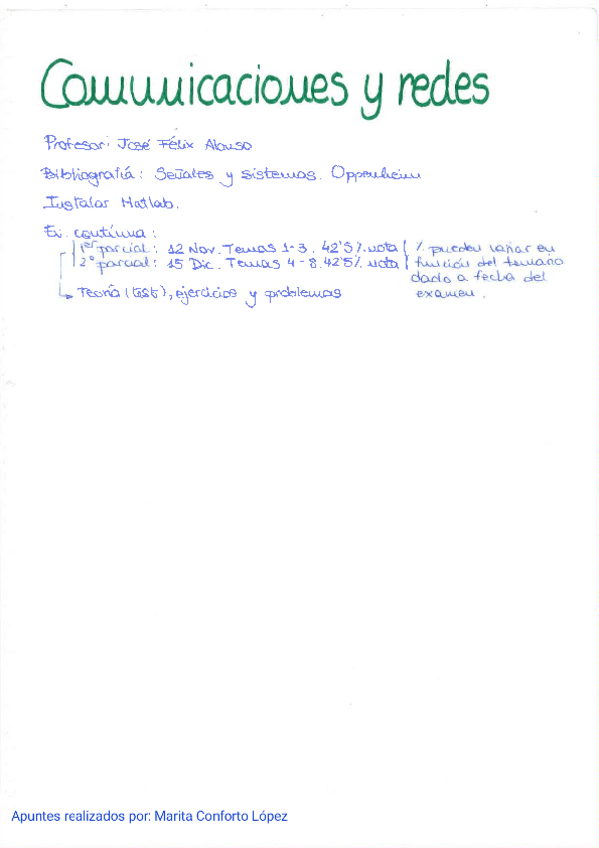 Comunicaciones y redes
Profesor: José Félix Alonso
Bibliografía: Señales y sistemas. Oppenheim
Instalar Matlab.
Ev. contínua:
1er parcial: 12 Nov. Temas 1-3. 42'5% nota
2º parcial: 15 Dic. Temas 4-8. 42'5% nota
% pueden variar en
función del temario
dado a fecha del
examen.
Teoría (test), ejercicios y problemas
Apuntes realizados por: Marita Conforto López